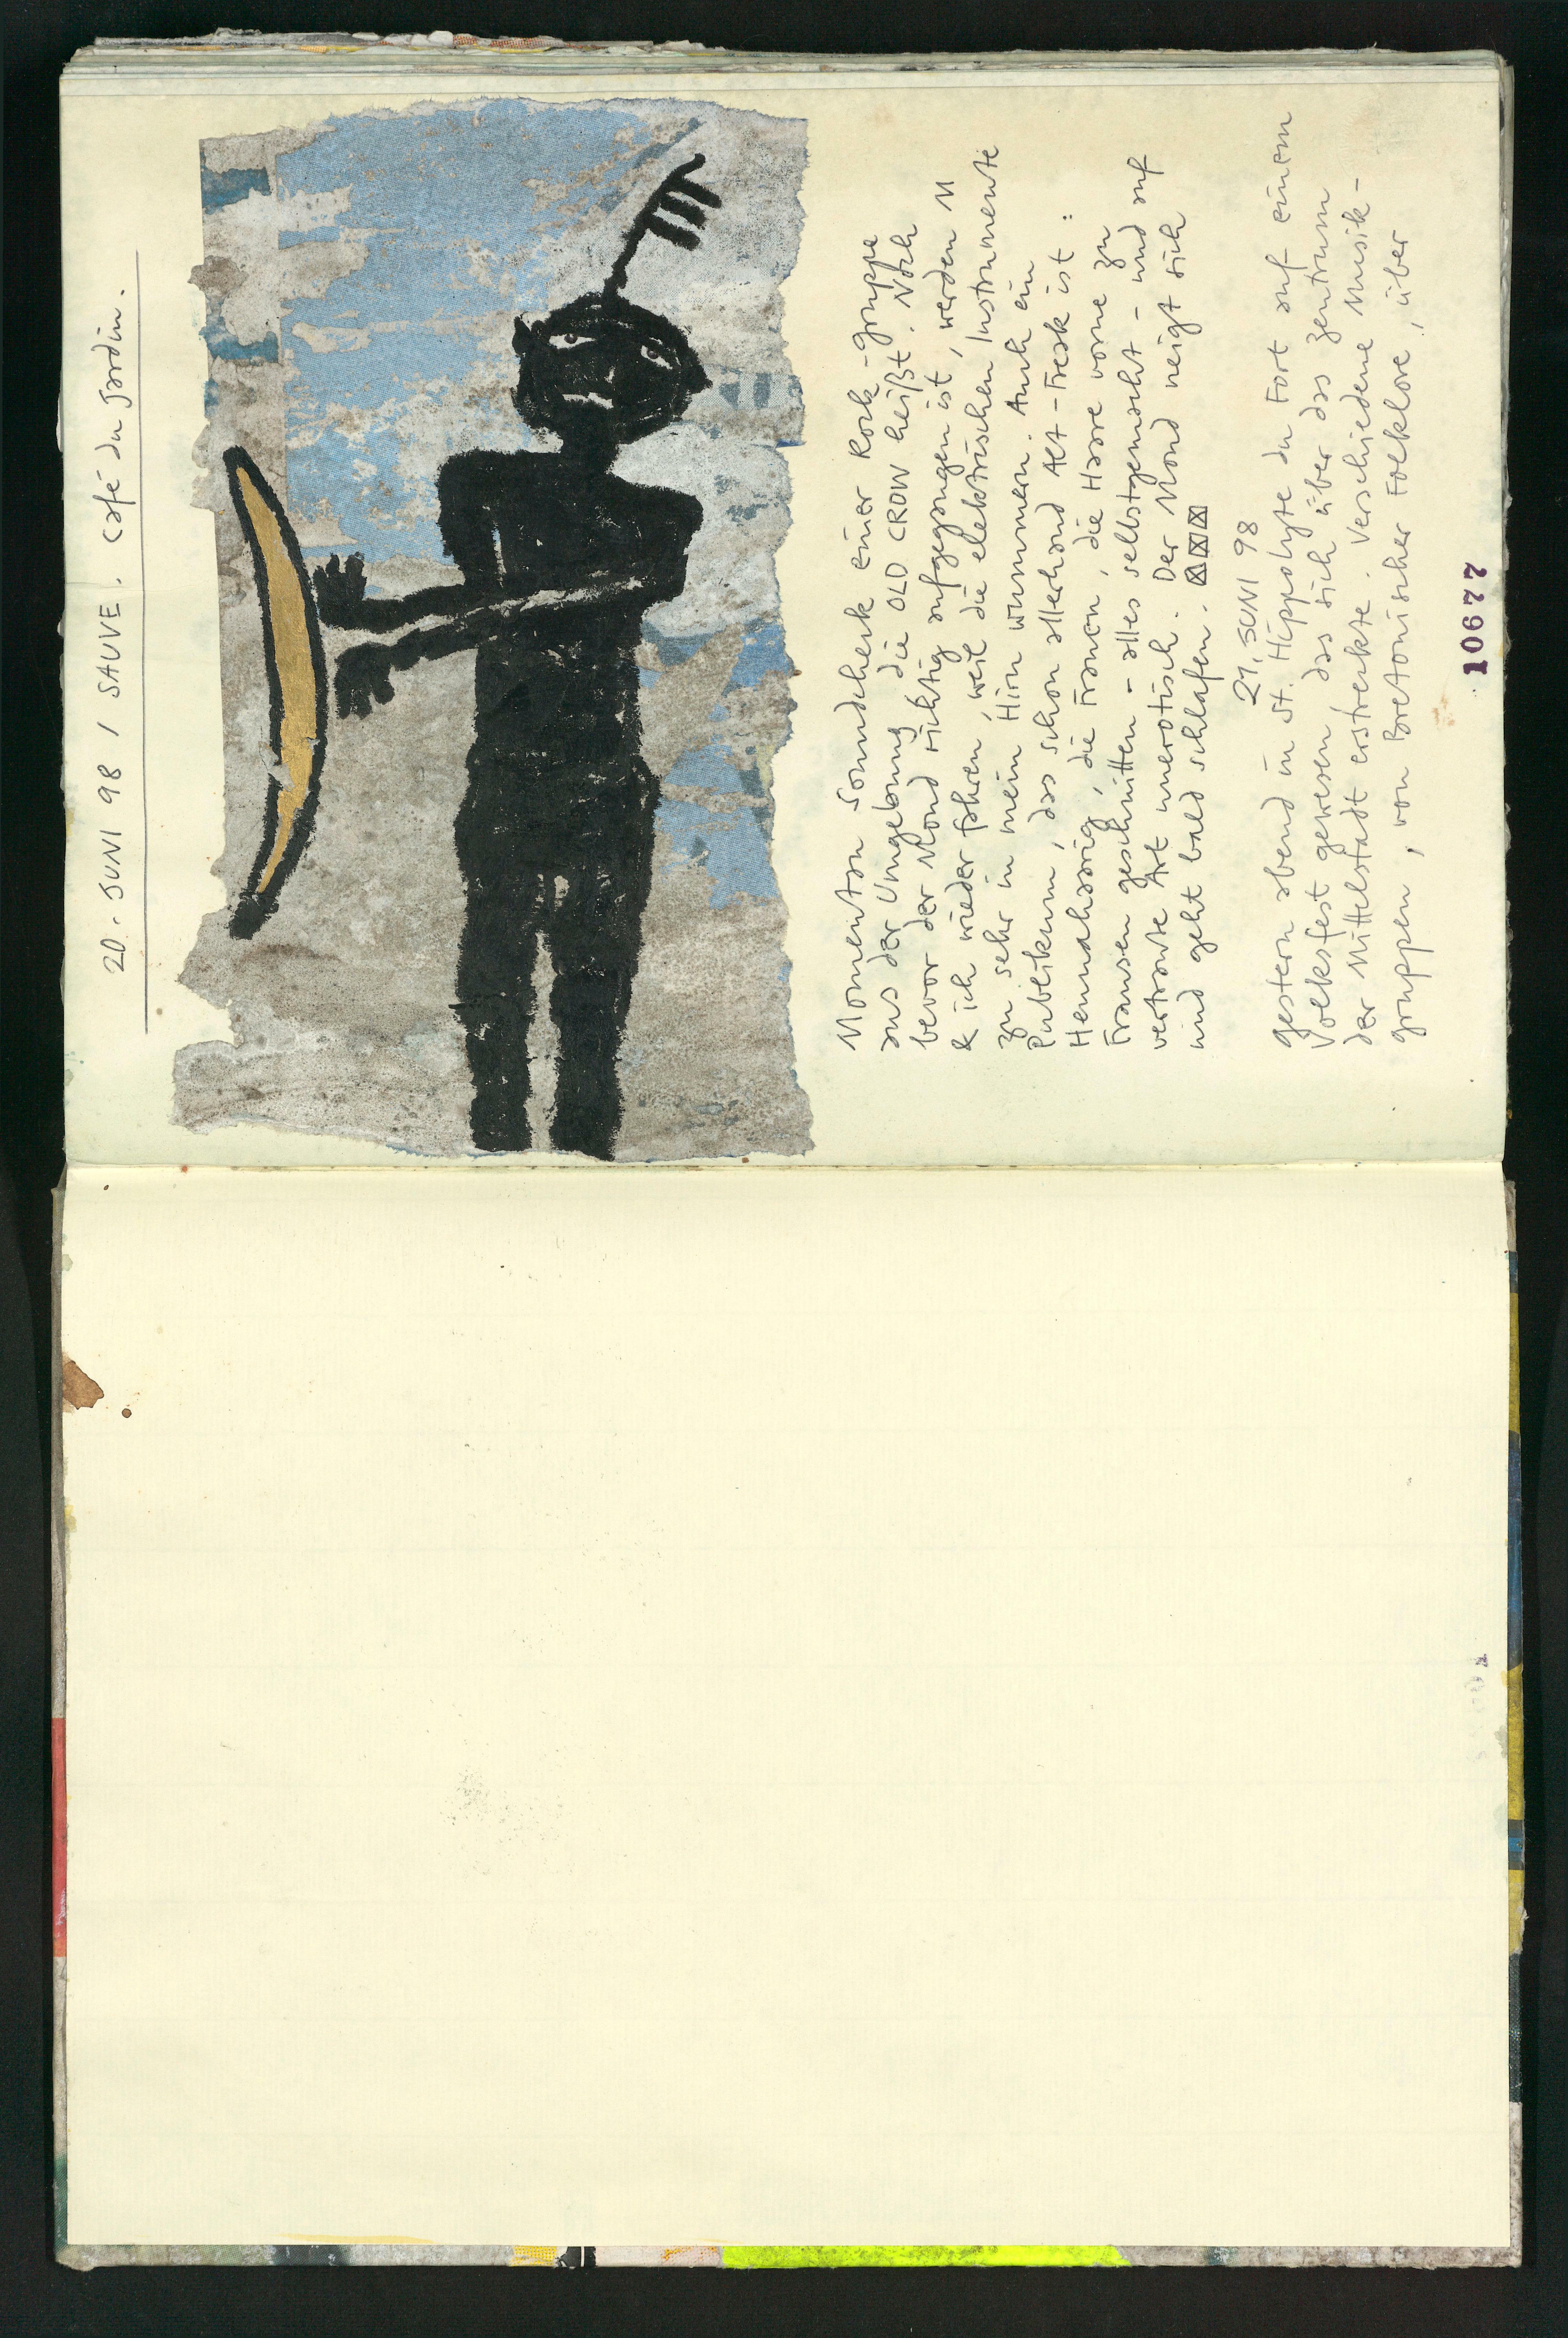 20. JUNI 98 / SAUVE. Café du Jardin.
Momentan Soundcheck einer Rock-gruppe
aus der Umgebung die OLD CROW heißt. Noch
bevor der Mond richtig aufgegangen ist, werden M
& ich wieder fahren, weil die elektrischen Instrumente
zu sehr in mein Hirn wummern. Auch ein
Publikum, das schon allerhand Alt-Freak ist:
Hennahaarig, die Frauen, die Haare vorne zu
Fransen geschnitten - alles selbstgemacht - und auf
vertraute Art unerotisch. Der Mond neigt sich
und geht bald schlafen.
21. JUNI 98
gestern abend in St. Hippolyte du Fort auf einem
Volksfest gewesen, das sich über das Zentrum
der Mittelstadt erstreckte. Verschiedene Musik-
gruppen, von Bretonischer Folklore, über
10677